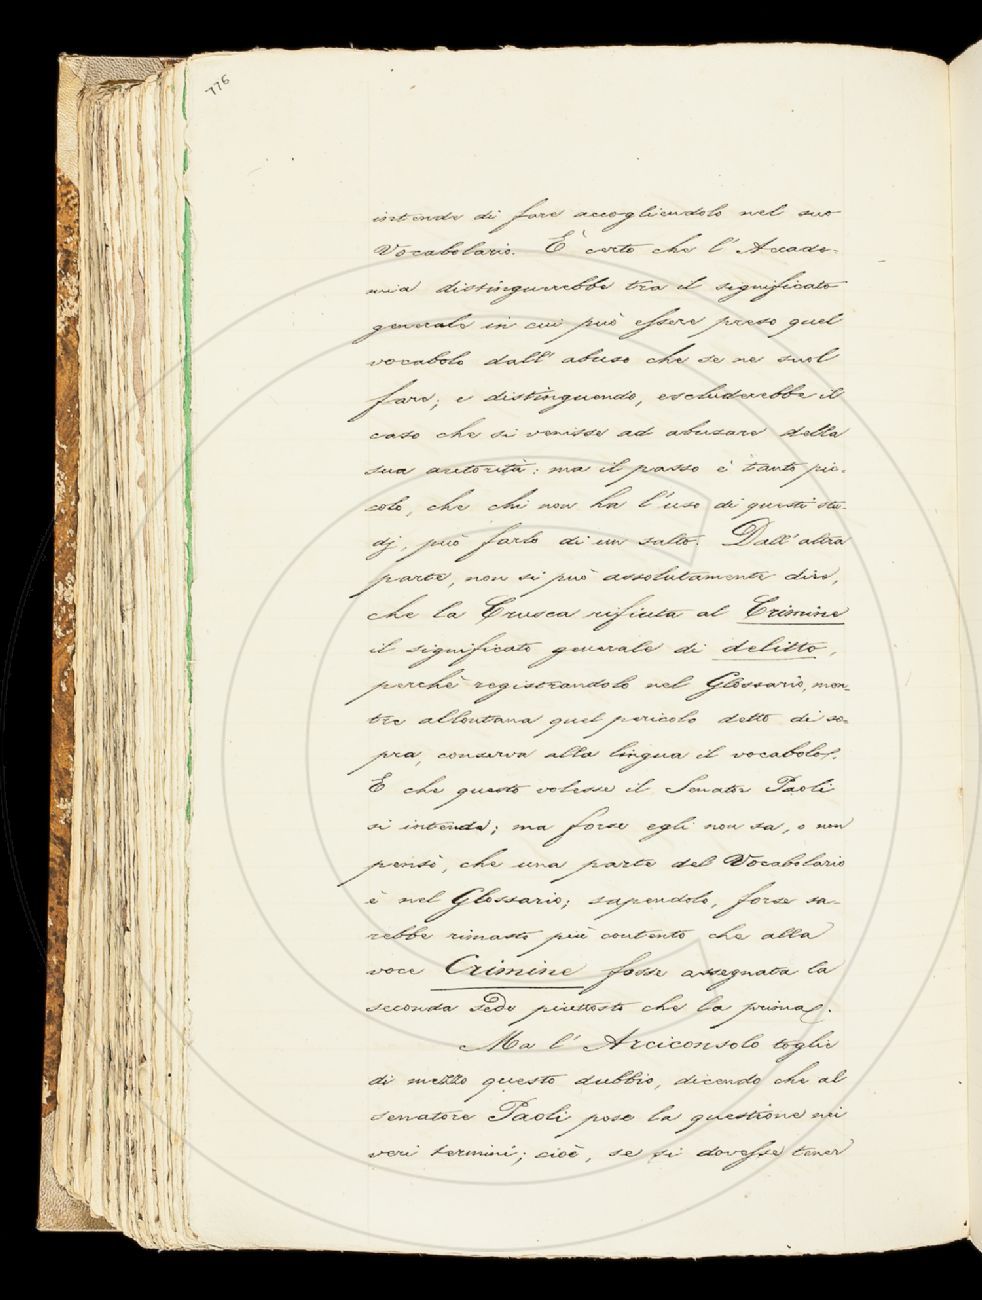 776
intende di fare accogliendolo nel suo
Vocabolario. È certo che l'Accade-
mia distinguerebbe tra il significato
generale in cui può essere preso quel
vocabolo dall'abuso che se ne suol
fare; e distinguendo, escluderebbe il
caso che si venisse ad abusare della
sua autorità: ma il passo è tanto pic-
colo, che chi non ha l'uso di questi stu-
dj, può farlo di un salto. Dall'altra
parte, non si può assolutamente dire,
che la Crusca rifiuta al Crimine
il significato generale di delitto,
perchè registrandolo nel Glossario, men-
tre allontana quel pericolo detto di so-
pra, conserva alla lingua il vocabolo.
E che questo volesse il Senator Paoli
si intende; ma forse egli non sa, o non
pensò, che una parte del Vocabolario
è nel Glossario; sapendolo, forse sa-
rebbe rimasto più contento che alla
voce Crimine fosse assegnata la
seconda Sede piuttosto che la prima.
Ma l'Arciconsolo toglie
di mezzo questo dubbio, dicendo che al
senatore Paoli pose la questione nei
veri termini; cioè, se si dovesse tener